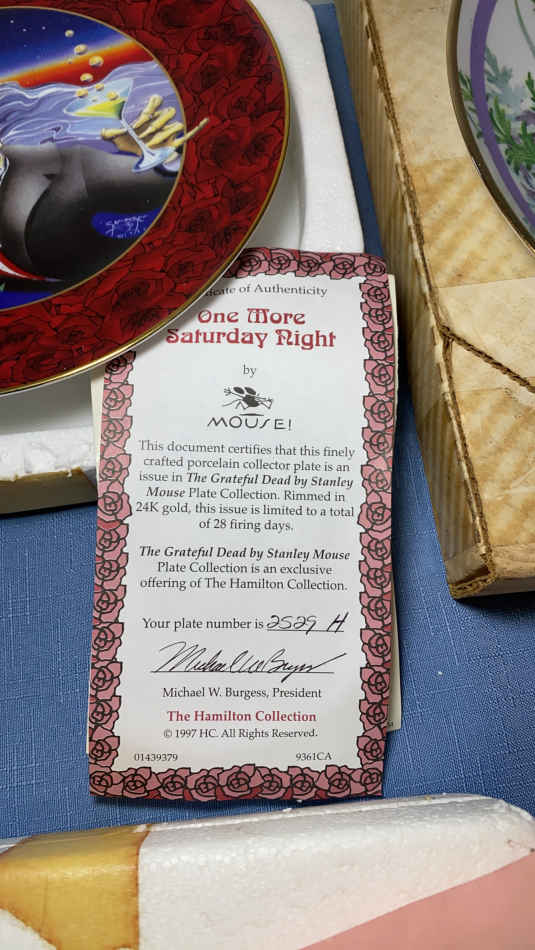 cate of Authenticity
One More
Saturday Night
by
MOUSE!
This document certifies that this finely
crafted porcelain collector plate is an
issue in The Grateful Dead by Stanley
Mouse Plate Collection. Rimmed in
24K gold, this issue is limited to a total
of 28 firing days.
The Grateful Dead by Stanley Mouse
Plate Collection is an exclusive
offering of The Hamilton Collection.
Your plate number is 2529 H
Michael W. Burgess
Michael W. Burgess, President
The Hamilton Collection
© 1997 HC. All Rights Reserved.
01439379 9361CA